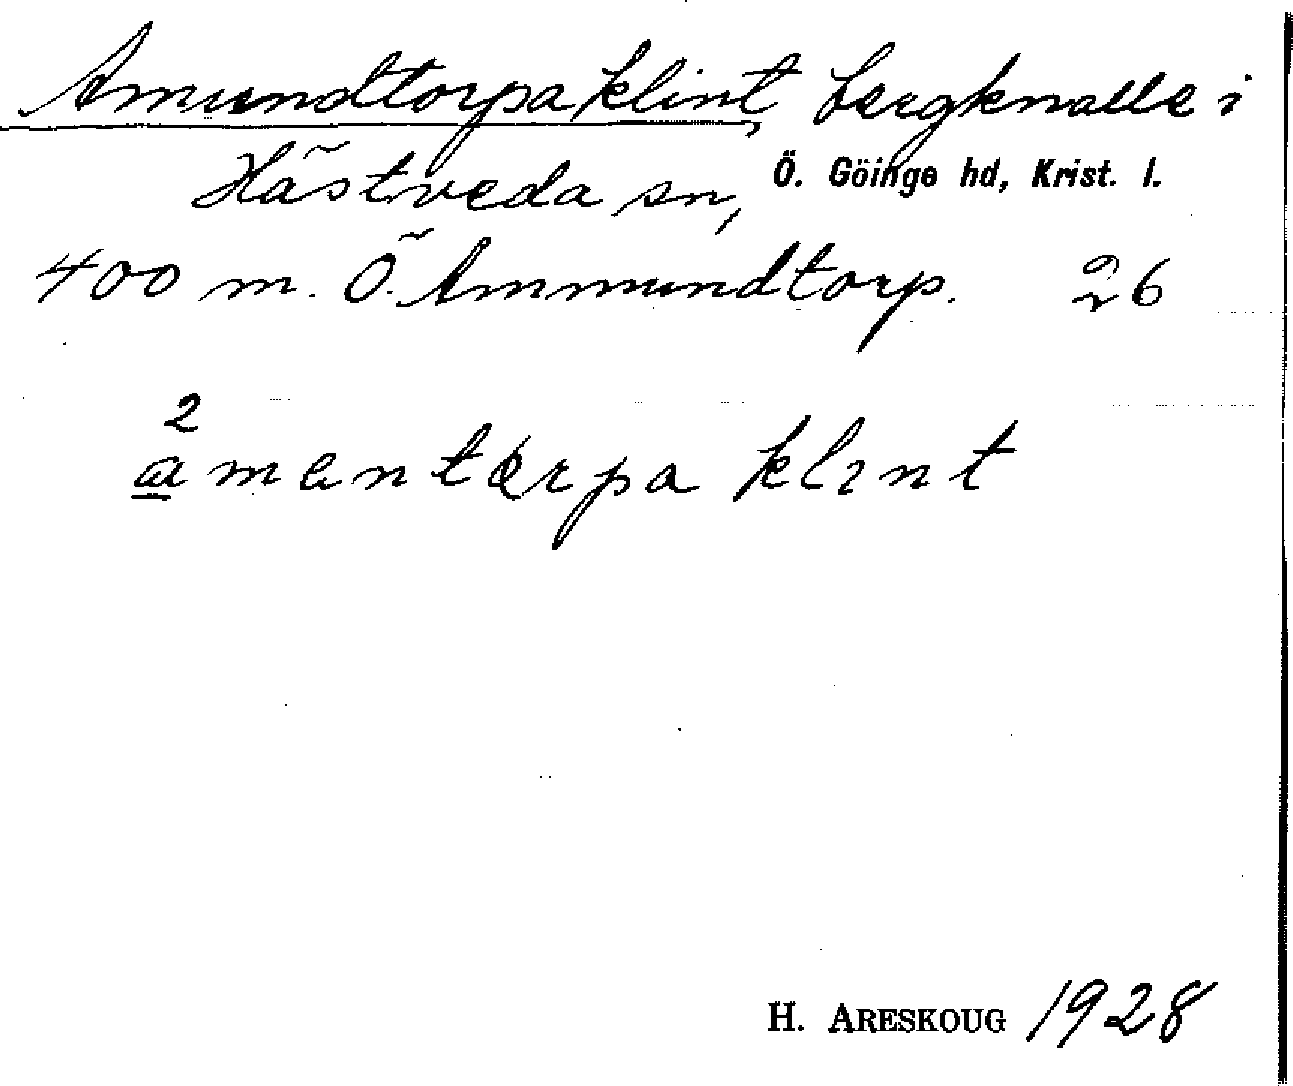 Amundtorpa klint, bergknalle i
Hästveda sn, Ö. Göinge hd, Krist. l.
400 m. Ö. Ammundtorp. 26
2
amentərpa klınt
H. ARESKOUG 1928